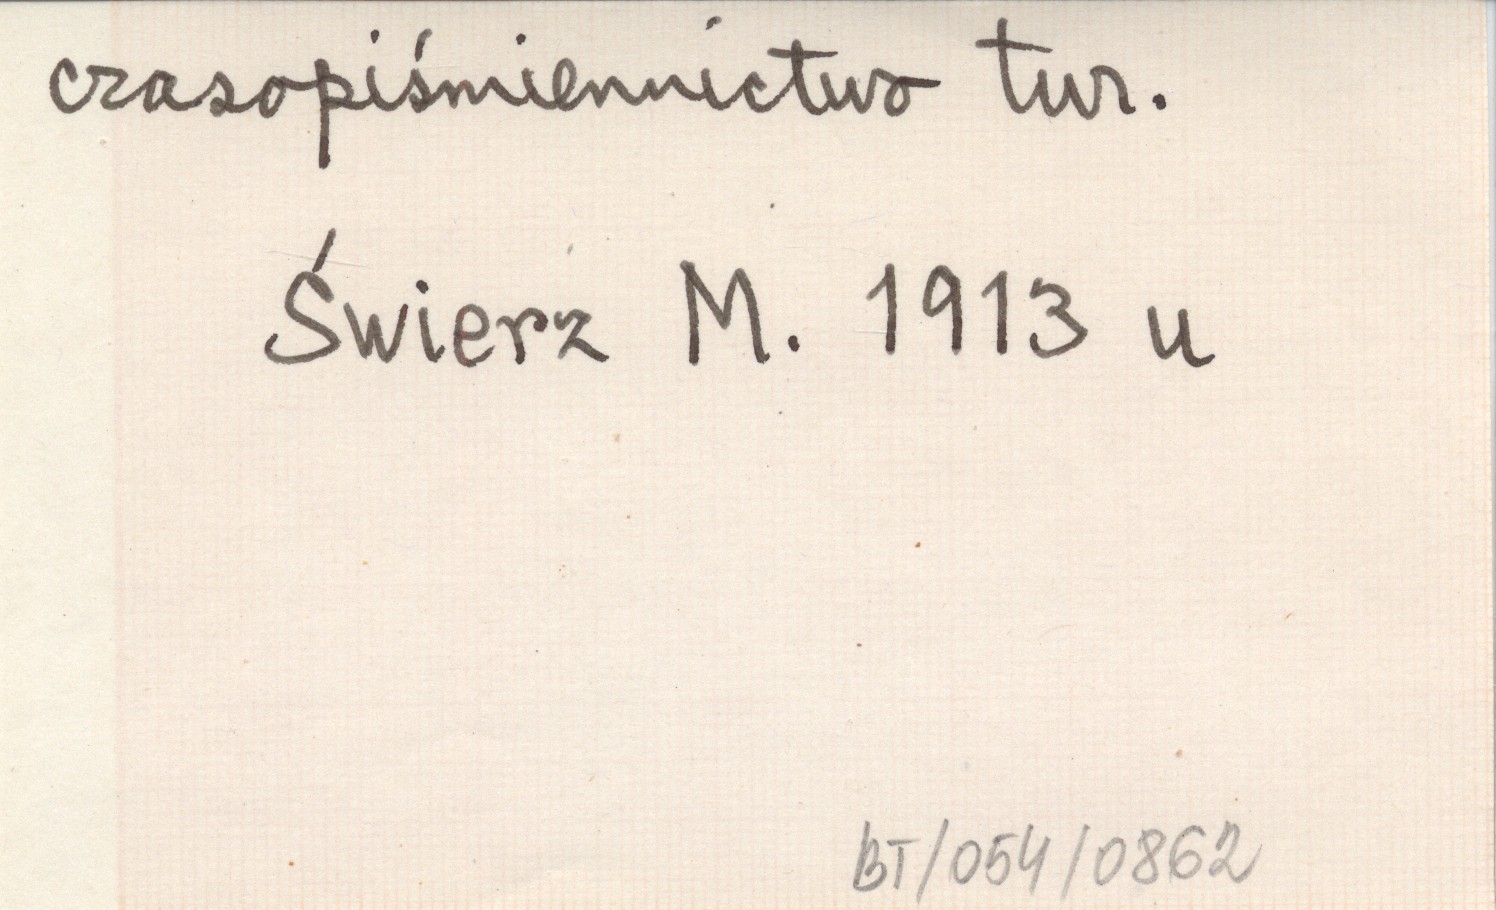 czasopiśmiennictwo tur.
Świerz M. 1913 u
BT/054/0862